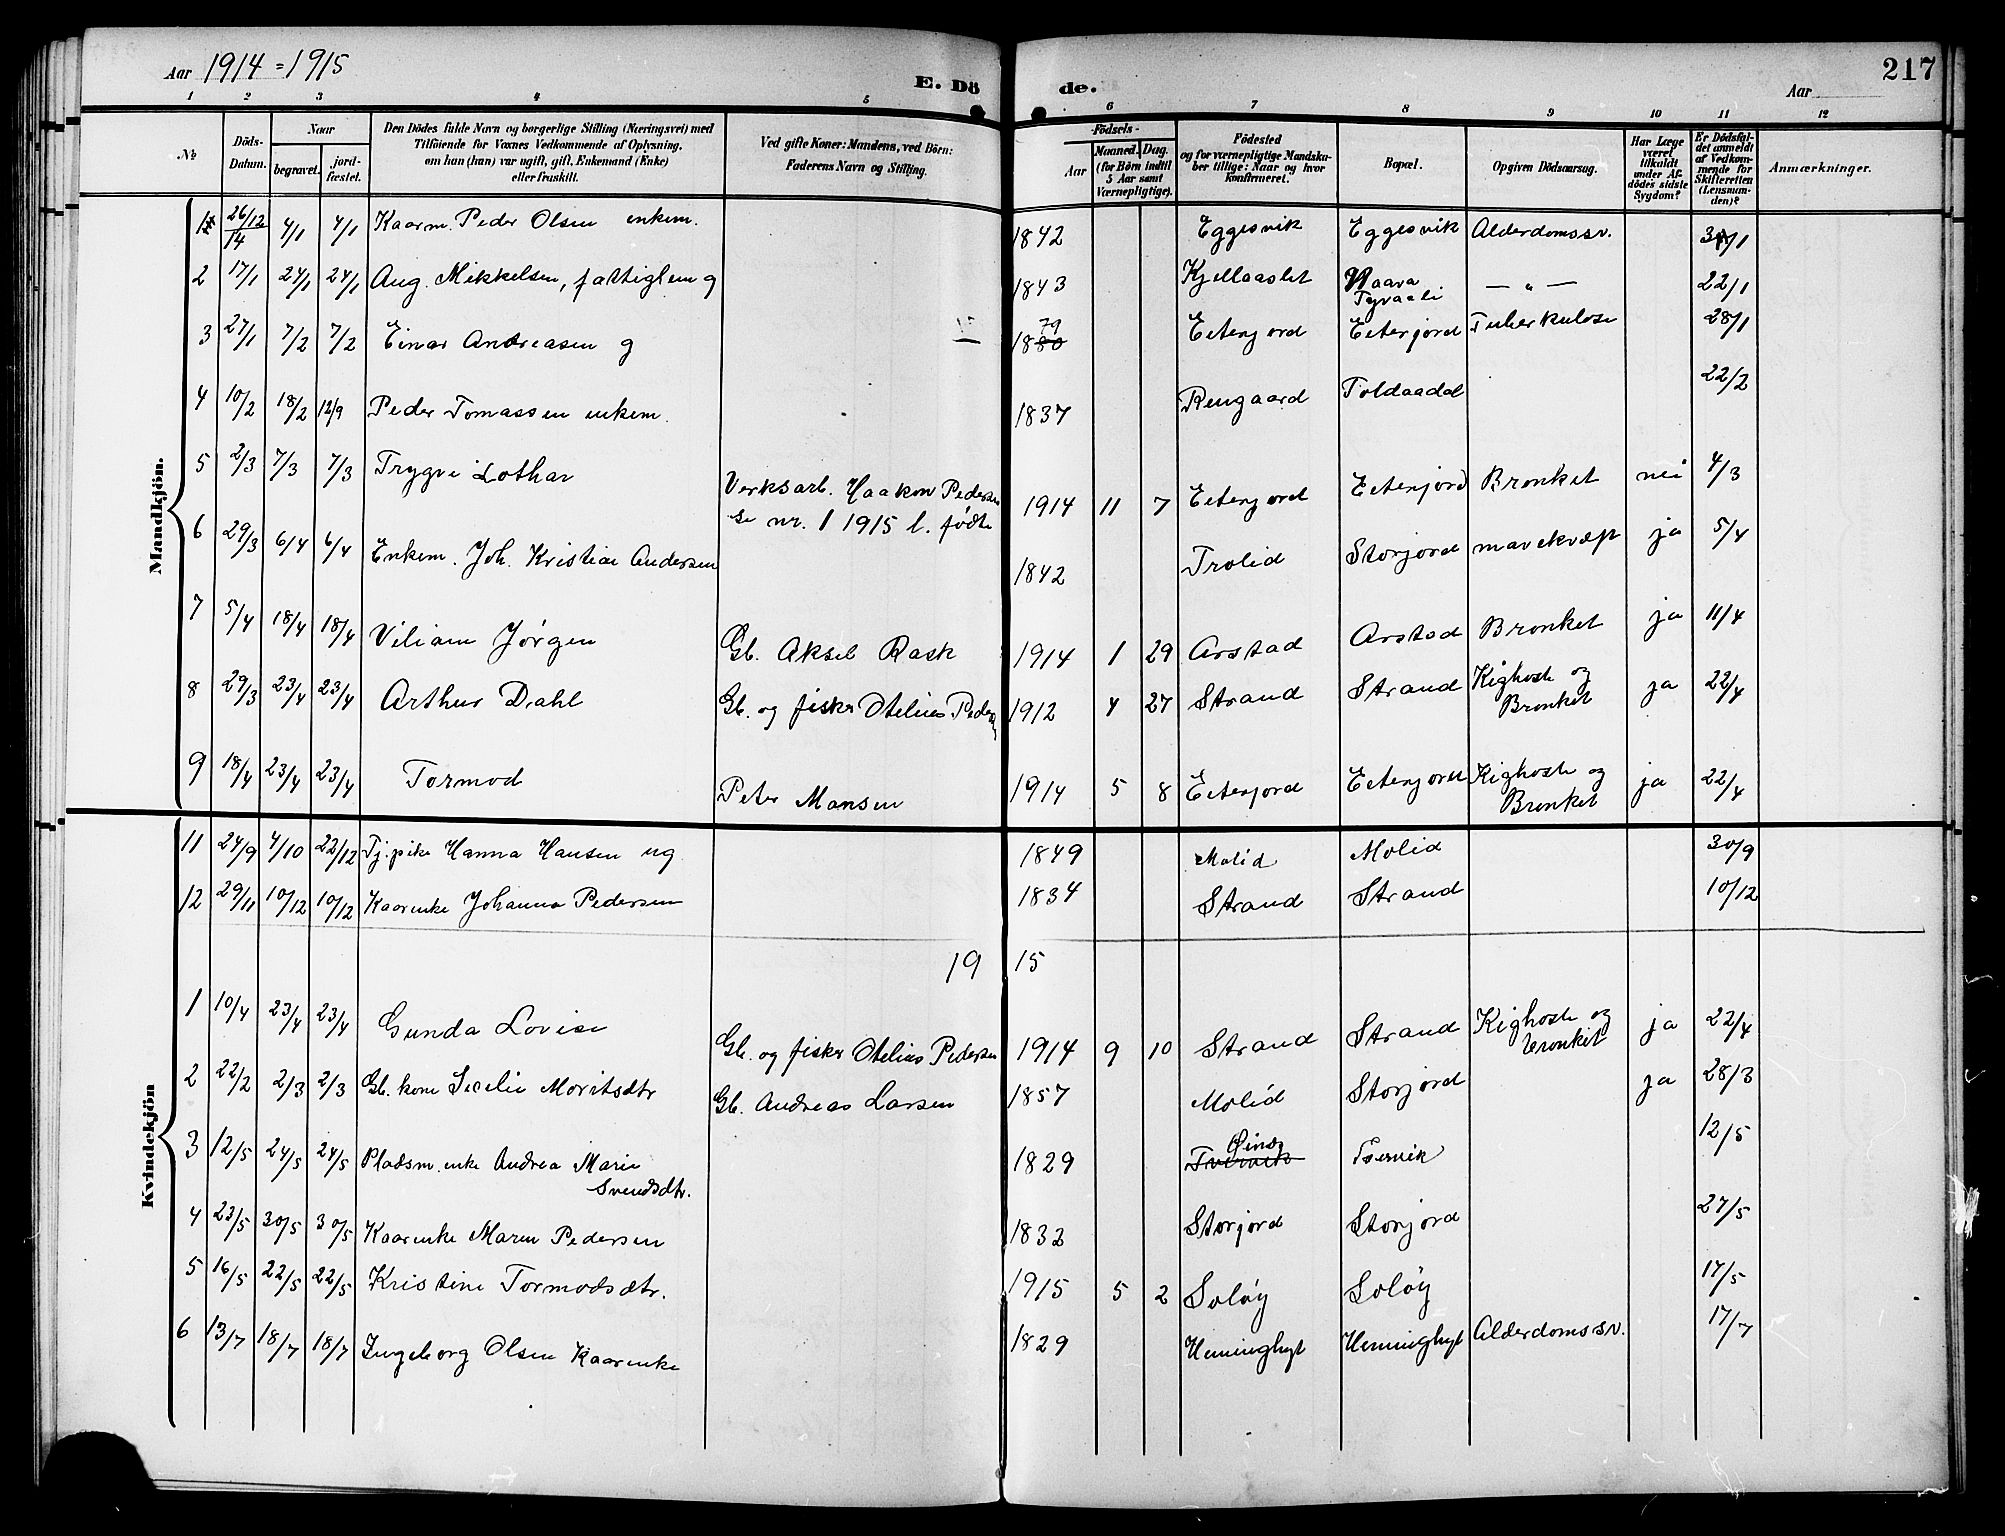 Aar 1914=1915
E. Döde.
Aar
217
1 2 3 4 5 6 7 8 9 10 11 12
No
Döds-Datum.
Naar
begravet.
jord-fæstet.
Den Dödes fulde Navn og borgerlige Stilling (Næringsvei) med
Tilföiende for Voxnes Vedkommende af Oplysning,
om han (hun) var ugift, gift, Enkemand (Enke)
eller fraskilt.
Ved gifte Koner: Mandens, ved Börn:
Faderens Navn og Stilling.
Födsels-
Aar
Maaned. Dag.
(for Börn indtil
5 Aar samt
Værnepligtige).
Födested
og for værnepligtige Mandska-
ber tillige: Naar og hvor
konfirmeret.
Bopæl.
Opgiven Dödsaarsag.
Har Læge
været
tilkaldt
under Af-
dödes sidste
Sygdom?
Er Dödsfal-
det anmeldt
af Vedkom-
mende for
Skifteretten
(Lensman-
den)?
Anmærkninger.
Mandkjön.
1 26/12 14 4/1 4/1 Kaarm. Peder Olsen enkem. 1842 Eggesvik Eggesvik Alderdomssv. /1
2 17/1 24/1 24/1 Aug. Mikkelsen, fattiglem g 1843 Kjellaaslet — „ — 22/1
3 27/1 7/2 7/2 Einar Andreasen g 1880 79 Eiterjord Eiterjord Tuberkulose 28/1
4 10/2 18/2 12/9 Peder Tomassen enkem. 1837 Rengaard Toldaadal 22/2
5 2/3 7/3 7/3 Trygve Lothar Verksarb. Haakon Pedersen
se nr. 1 1915 l. fødte 1914 11 7 Eiterjord Eiterjord Bronket nei 4/3
6 29/3 6/4 6/4 Enkem. Joh. Kristian Andersen 1842 Trolid Storjord mavekræft ja 5/4
7 5/4 18/4 18/4 Viliam Jørgen Gb. Aksel Rask 1914 1 29 Arstad Arstad Bronket ja 11/4
8 29/3 23/4 23/4 Arthur Dahl Gb. og fisker Otelius Peders 1912 4 27 Strand Strand Kighoste og
Bronket ja 22/4
9 18/4 23/4 23/4 Tormod Peter Mansen 1914 5 8 Eiterjord Eiterjord Kighoste og
Bronket ja 22/4
Kvindekjön
11 24/9 4/10 22/12 Tj.pike Hanna Hansen ug 1849 Molid Molid 30/9
12 29/11 10/12 10/12 Kaarenke Johanna Pedersen 1834 Strand Strand 10/12
19 15
1 10/4 23/4 23/4 Gunda Lovise Gb. og fisker Otelius Pedersen 1914 9 10 Strand Strand Kighoste og
bronket ja 22/4
2 22/2 2/3 2/3 Gb. kone Secelie Moritsdtr Gb. Andreas Larsen 1857 Molid Storjord ja 28/3
3 12/5 24/5 24/5 Pladsm. enke Andrea Marie
Svendsdtr. 1829 Tvervik 12/5
4 23/5 30/5 30/5 Kaarenke Maren Pedersen 1832 Storjord Storjord 27/5
5 16/5 22/5 22/5 Kristine Tormodsdtr. 1915 5 2 Soløy Soløy 17/5
6 13/7 18/7 18/7 Ingeborg Olsen Kaarenke 1829 Heminghyt Heminghyt Alderdomssv. 17/7